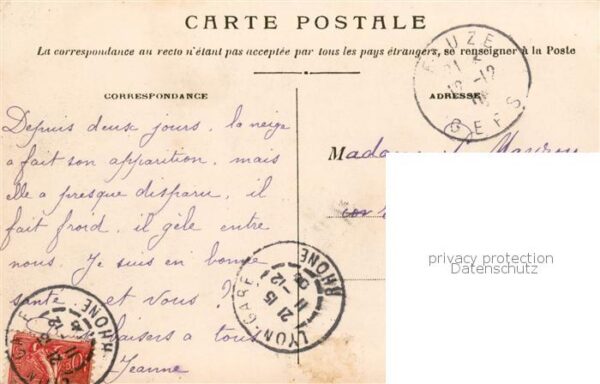 CARTE POSTALE
La correspondance au recto n'étant pas acceptée par tous les pays étrangers, se renseigner à la Poste
CORRESPONDANCE
Depuis deux jours, la neige
a fait son apparition, mais
elle a presque disparu, il
fait froid, il gèle entre
nous. Je suis en bonne
santé et vous ?
baisers a tous
Jeanne
ADRESSE
Madame
EAUZE
GERS
LYON-GARE
RHONE
21 15
11-12
RHONE
privacy protection
Datenschutz